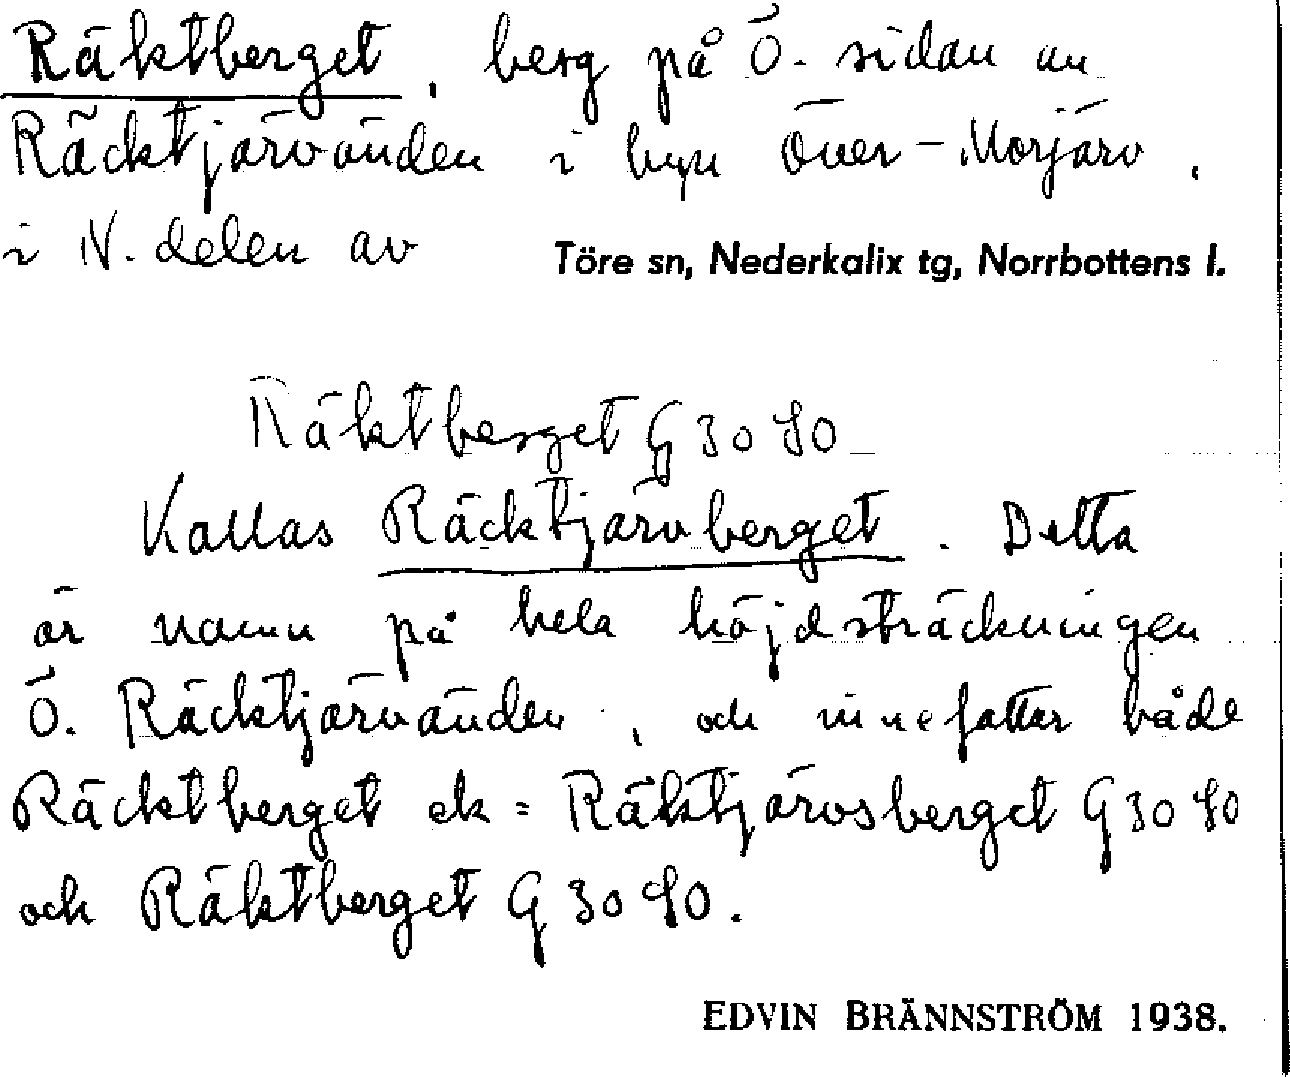 Räktberget, berg på Ö. sidan av
Räcktjärvånden i byn Över-Morjärv,
i N. delen av Töre sn, Nederkalix tg, Norrbottens l.
Räktberget G 30 SO
Kallas Räcktjärvberget. Detta
är namn på hela höjdsträckningen
Ö. Räcktjärvånden, och innefattar både
Räcktberget ek = Räktjärvsberget G 30 SO
och Räktberget G 30 SO.
EDVIN BRÄNNSTRÖM 1938.